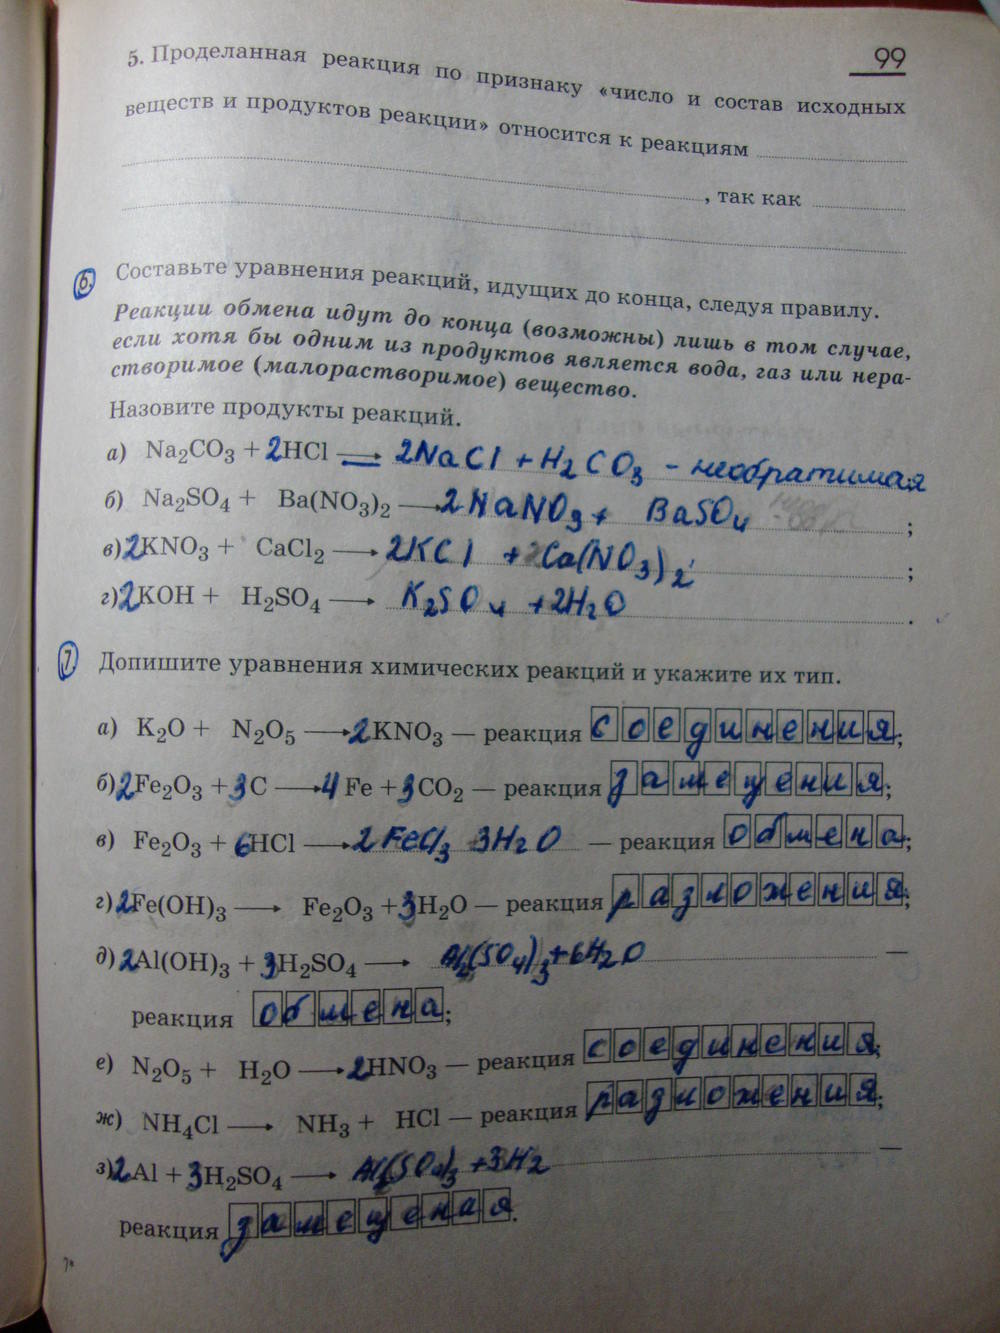 99
5. Проделанная реакция по признаку «число и состав исходных
веществ и продуктов реакции» относится к реакциям
, так как
6. Составьте уравнения реакций, идущих до конца, следуя правилу.
Реакции обмена идут до конца (возможны) лишь в том случае,
если хотя бы одним из продуктов является вода, газ или нера-
створимое (малорастворимое) вещество.
Назовите продукты реакций.
а) Na₂CO₃ + 2HCl ⟶ 2NaCl + H₂CO₃ - необратимая
б) Na₂SO₄ + Ba(NO₃)₂ ⟶ 2NaNO₃ + BaSO₄ ;
в) 2KNO₃ + CaCl₂ ⟶ 2KCl + Ca(NO₃)₂ ;
г) 2KOH + H₂SO₄ ⟶ K₂SO₄ + 2H₂O .
7. Допишите уравнения химических реакций и укажите их тип.
а) K₂O + N₂O₅ ⟶ 2KNO₃ — реакция соединения;
б) 2Fe₂O₃ + 3C ⟶ 4Fe + 3CO₂ — реакция замещения;
в) Fe₂O₃ + 6HCl ⟶ 2FeCl₃ 3H₂O — реакция обмена;
г) 2Fe(OH)₃ ⟶ Fe₂O₃ + 3H₂O — реакция разложения;
д) 2Al(OH)₃ + 3H₂SO₄ ⟶ Al₂(SO₄)₃ + 6H₂O —
реакция обмена;
е) N₂O₅ + H₂O ⟶ 2HNO₃ — реакция соединения;
ж) NH₄Cl ⟶ NH₃ + HCl — реакция разложения;
з) 2Al + 3H₂SO₄ ⟶ Al₂(SO₄)₃ + 3H₂ —
реакция замещеная.